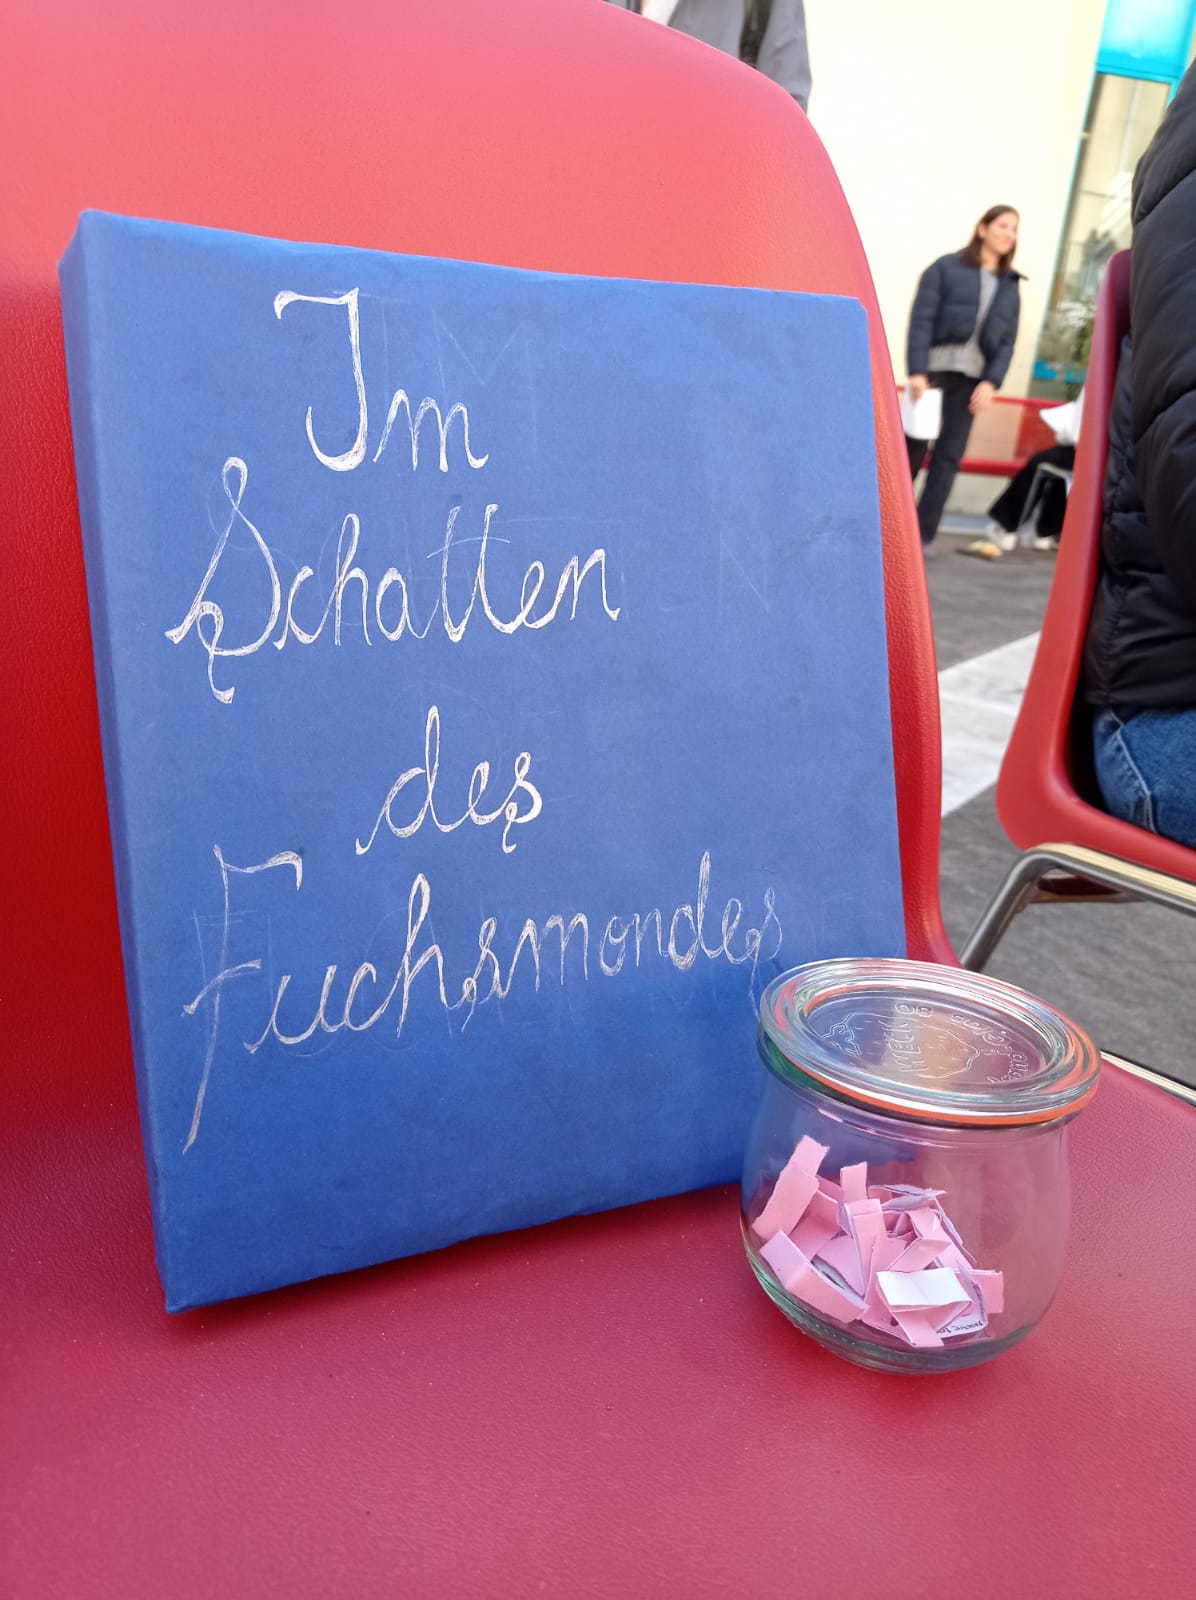 Im
Schatten
des
Fuchsmondes
WECK